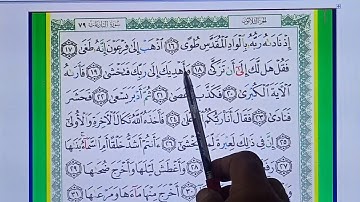 سورة النازعات ٧٩ الجزء الثلاثون
إِذْ نَادَىٰهُ رَبُّهُ بِالْوَادِ الْمُقَدَّسِ طُوًى ١٦ اذْهَبْ إِلَىٰ فِرْعَوْنَ إِنَّهُ طَغَىٰ ١٧
فَقُلْ هَل لَّكَ إِلَىٰ أَن تَزَكَّىٰ ١٨ وَأَهْدِيَكَ إِلَىٰ رَبِّكَ فَتَخْشَىٰ ١٩ فَأَرَىٰهُ
الْآيَةَ الْكُبْرَىٰ ٢٠ فَكَذَّبَ وَعَصَىٰ ٢١ ثُمَّ أَدْبَرَ يَسْعَىٰ ٢٢ فَحَشَرَ
فَنَادَىٰ ٢٣ فَقَالَ أَنَا ٢٤ فَأَخَذَهُ اللَّهُ نَكَالَ الْآخِرَةِ وَالْأُولَىٰ
٢٥ إِنَّ فِي ذَٰلِكَ لَعِبْرَةً ٢٦ ءَأَنتُمْ أَشَدُّ خَلْقًا أَمِ السَّمَاءُ بَنَىٰهَا
٢٧ وَأَغْطَشَ لَيْلَهَا وَأَخْرَجَ ضُحَىٰهَا ٢٩
أَخْرَجَ مِنْهَا مَاءَهَا وَمَرْعَىٰهَا ٣١